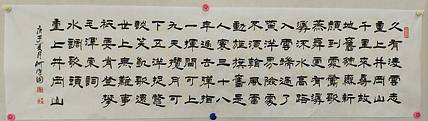 久有凌雲志
重上井岡山
千里來尋故
地舊貌變新
顏到處鶯歌
燕舞更有潺
潺流水高路
入雲端過了
黃洋界險處
不須看風雷
動旌旗奮是
人寰三十八
年過去彈指
一揮間可上
九天攬月可
下五洋捉鱉
談笑凱歌還
世上無難事
只要肯登攀
毛澤東詞
水調歌頭
重上井岡山
庚子夏月